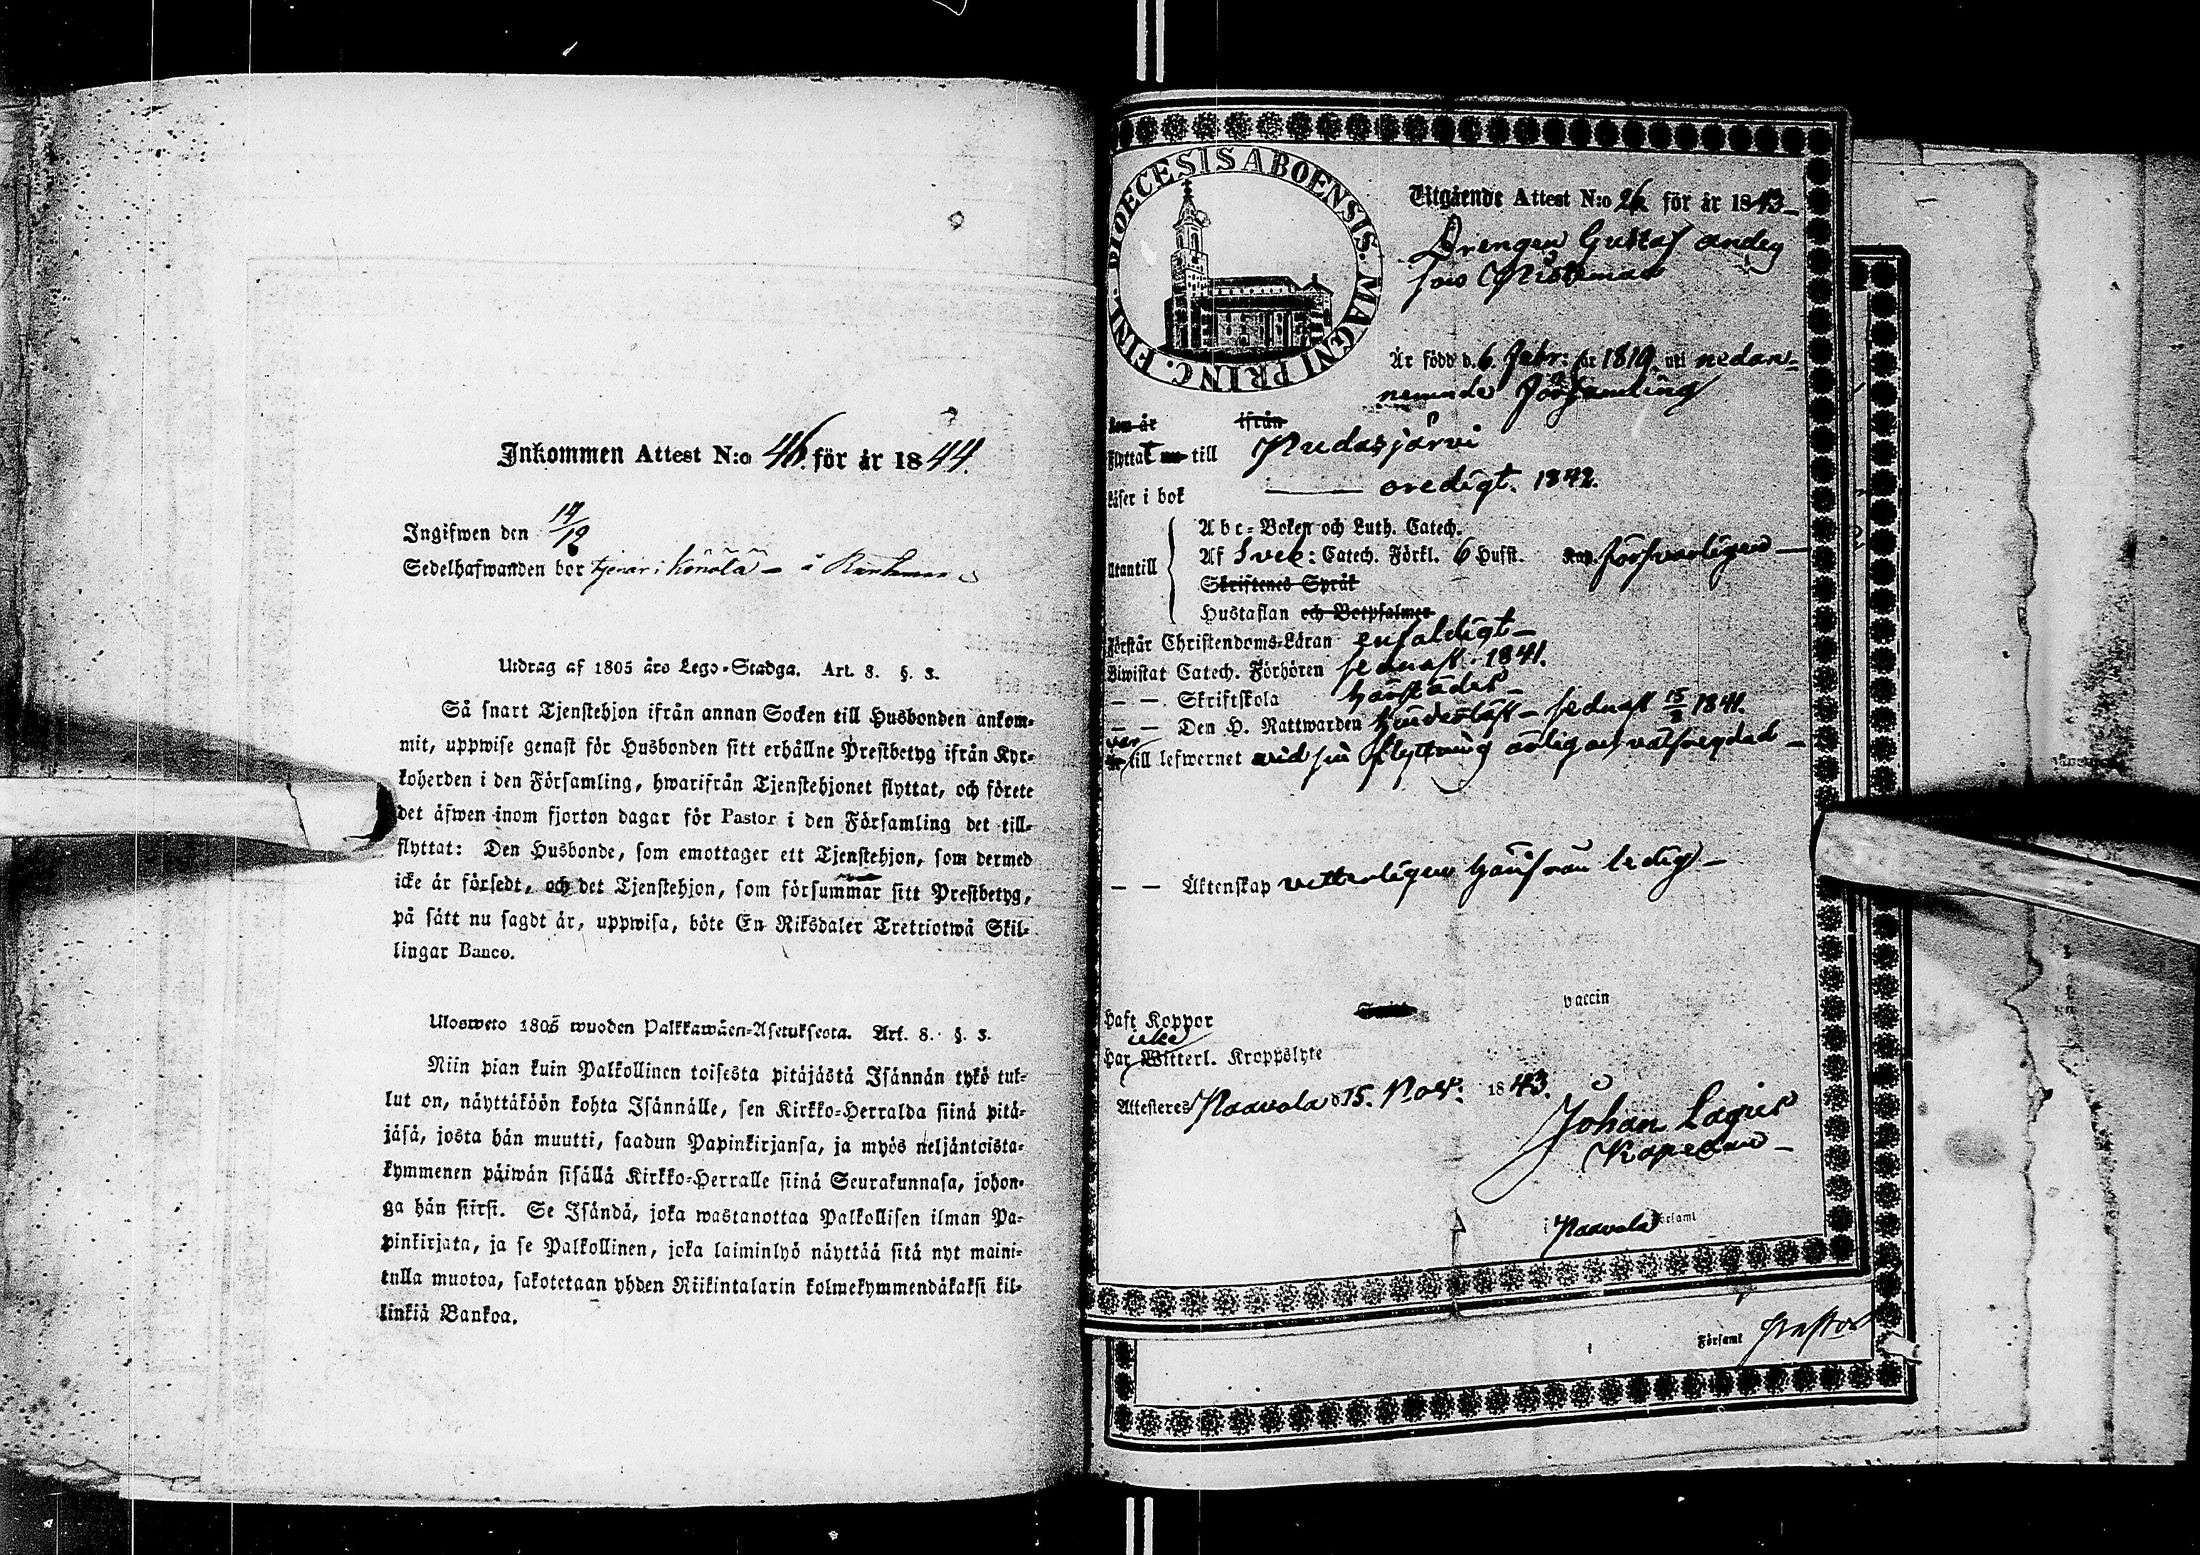 Inkommen Attest N:o 46. för år 1844.
Ingifwen den 14/12
Sedelhafwanden bor tjenar i
Utdrag af 1805 års Lego-Stadga. Art. 8. §. 3.
Så snart Tjenstehjon ifrån annan Socken till Husbonden ankom-
mit, uppwise genast för Husbonden sitt erhållne Prestbetyg ifrån Kyr-
koherden i den Församling, hwarifrån Tjenstehjonet flyttat, och förete
det äfwen inom fjorton dagar för Pastor i den Församling det till-
flyttat: Den Husbonde, som emottager ett Tjenstehjon, som dermed
icke är försedt, och det Tjenstehjon, som försummar sitt Prestbetyg,
på sätt nu sagdt är, uppwisa, böte En Riksdaler Trettiotwå Skil-
lingar Banco.
Ulosweto 1805 wuoden Palkkawäen-Asetuksesta. Art. 8. §. 3.
Niin pian kuin Palkollinen toisesta pitäjästä Isännän tykö tul-
lut on, näyttäköön kohta Isännälle, sen Kirkko-Herralda siinä pitä-
jäsä, josta hän muutti, saadun Papinkirjansa, ja myös neljäntoista-
kymmenen päiwän sisällä Kirkko-Herralle siinä Seurakunnasa, johon-
ga hän siirsi. Se Isändä, joka wastanottaa Palkollisen ilman Pa-
pinkirjata, ja se Palkollinen, joka laiminlyö näyttää sitä nyt maini-
tulla muotoa, sakotetaan yhden Riikintalarin kolmekymmendäkaksi kil-
linkiä Bankoa.
DIOECESIS ABOENSIS. MAGNI PRINC. FINL.
Utgående Attest N:o 26 för år 1843
Drengen Gustaf Anders
son
Är född d. 6. Febr: år 1819. uti nedan-
nemnde Församling
Kom år ifrån
Flyttat nu till Pudasjärvi
Läser i bok oredigt. 1842.
Utantill
Abc-Boken och Luth. Catech.
Af Sveb: Catech. Förkl. 6 Hufst. försvarligen
Skriftenes Språk
Hustaflan och Botpsalmer
Förstår Christendoms-Läran enfaldigt
Biwistat Catech. Förhören sednast 1841.
— —. Skriftskola härstädes
— — Den H. Nattwarden sednast 15/8 1841.
var
Är till lefwernet vid sin flyttning ärlig och välfregdad
— — Äktenskap vetterligen härifrån ledig
Haft Koppor vaccin
icke
Har Witterl. Kroppslyte
Attesteres Paavola d 15. Nov. 1843.
Johan Lagus
Kapellan
i Paavola Församl
Församl Pastor